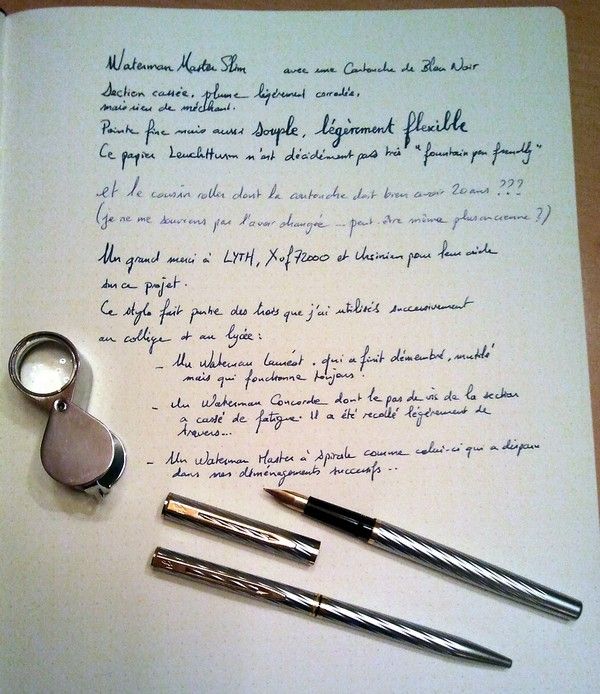 Waterman Master Slim avec une Cartouche de Bleu Noir
Section cassée, plume légèrement corrodée,
mais rien de méchant.
Pointe fine mais aussi souple, légèrement flexible
Ce papier Leuchtturm n'est décidément pas très "fountain pen friendly"
et le cousin roller dont la cartouche doit bien avoir 20 ans ???
(je ne me souviens pas l'avoir changée ... peut-être même plus ancienne ?)
Un grand merci à LYTH, Xof72000 et Ursinien pour leur aide
sur ce projet.
Ce stylo fait partie des trois que j'ai utilisés successivement
au collège et au lycée :
- Un Waterman Lauréat, qui a finit démembré, mutilé
mais qui fonctionne toujours.
- Un Waterman Concorde dont le pas de vis de la section
a cassé de fatigue. Il a été recollé légèrement de
travers...
- Un Waterman Master à spirale comme celui-ci qui a disparu
dans mes déménagements successifs...